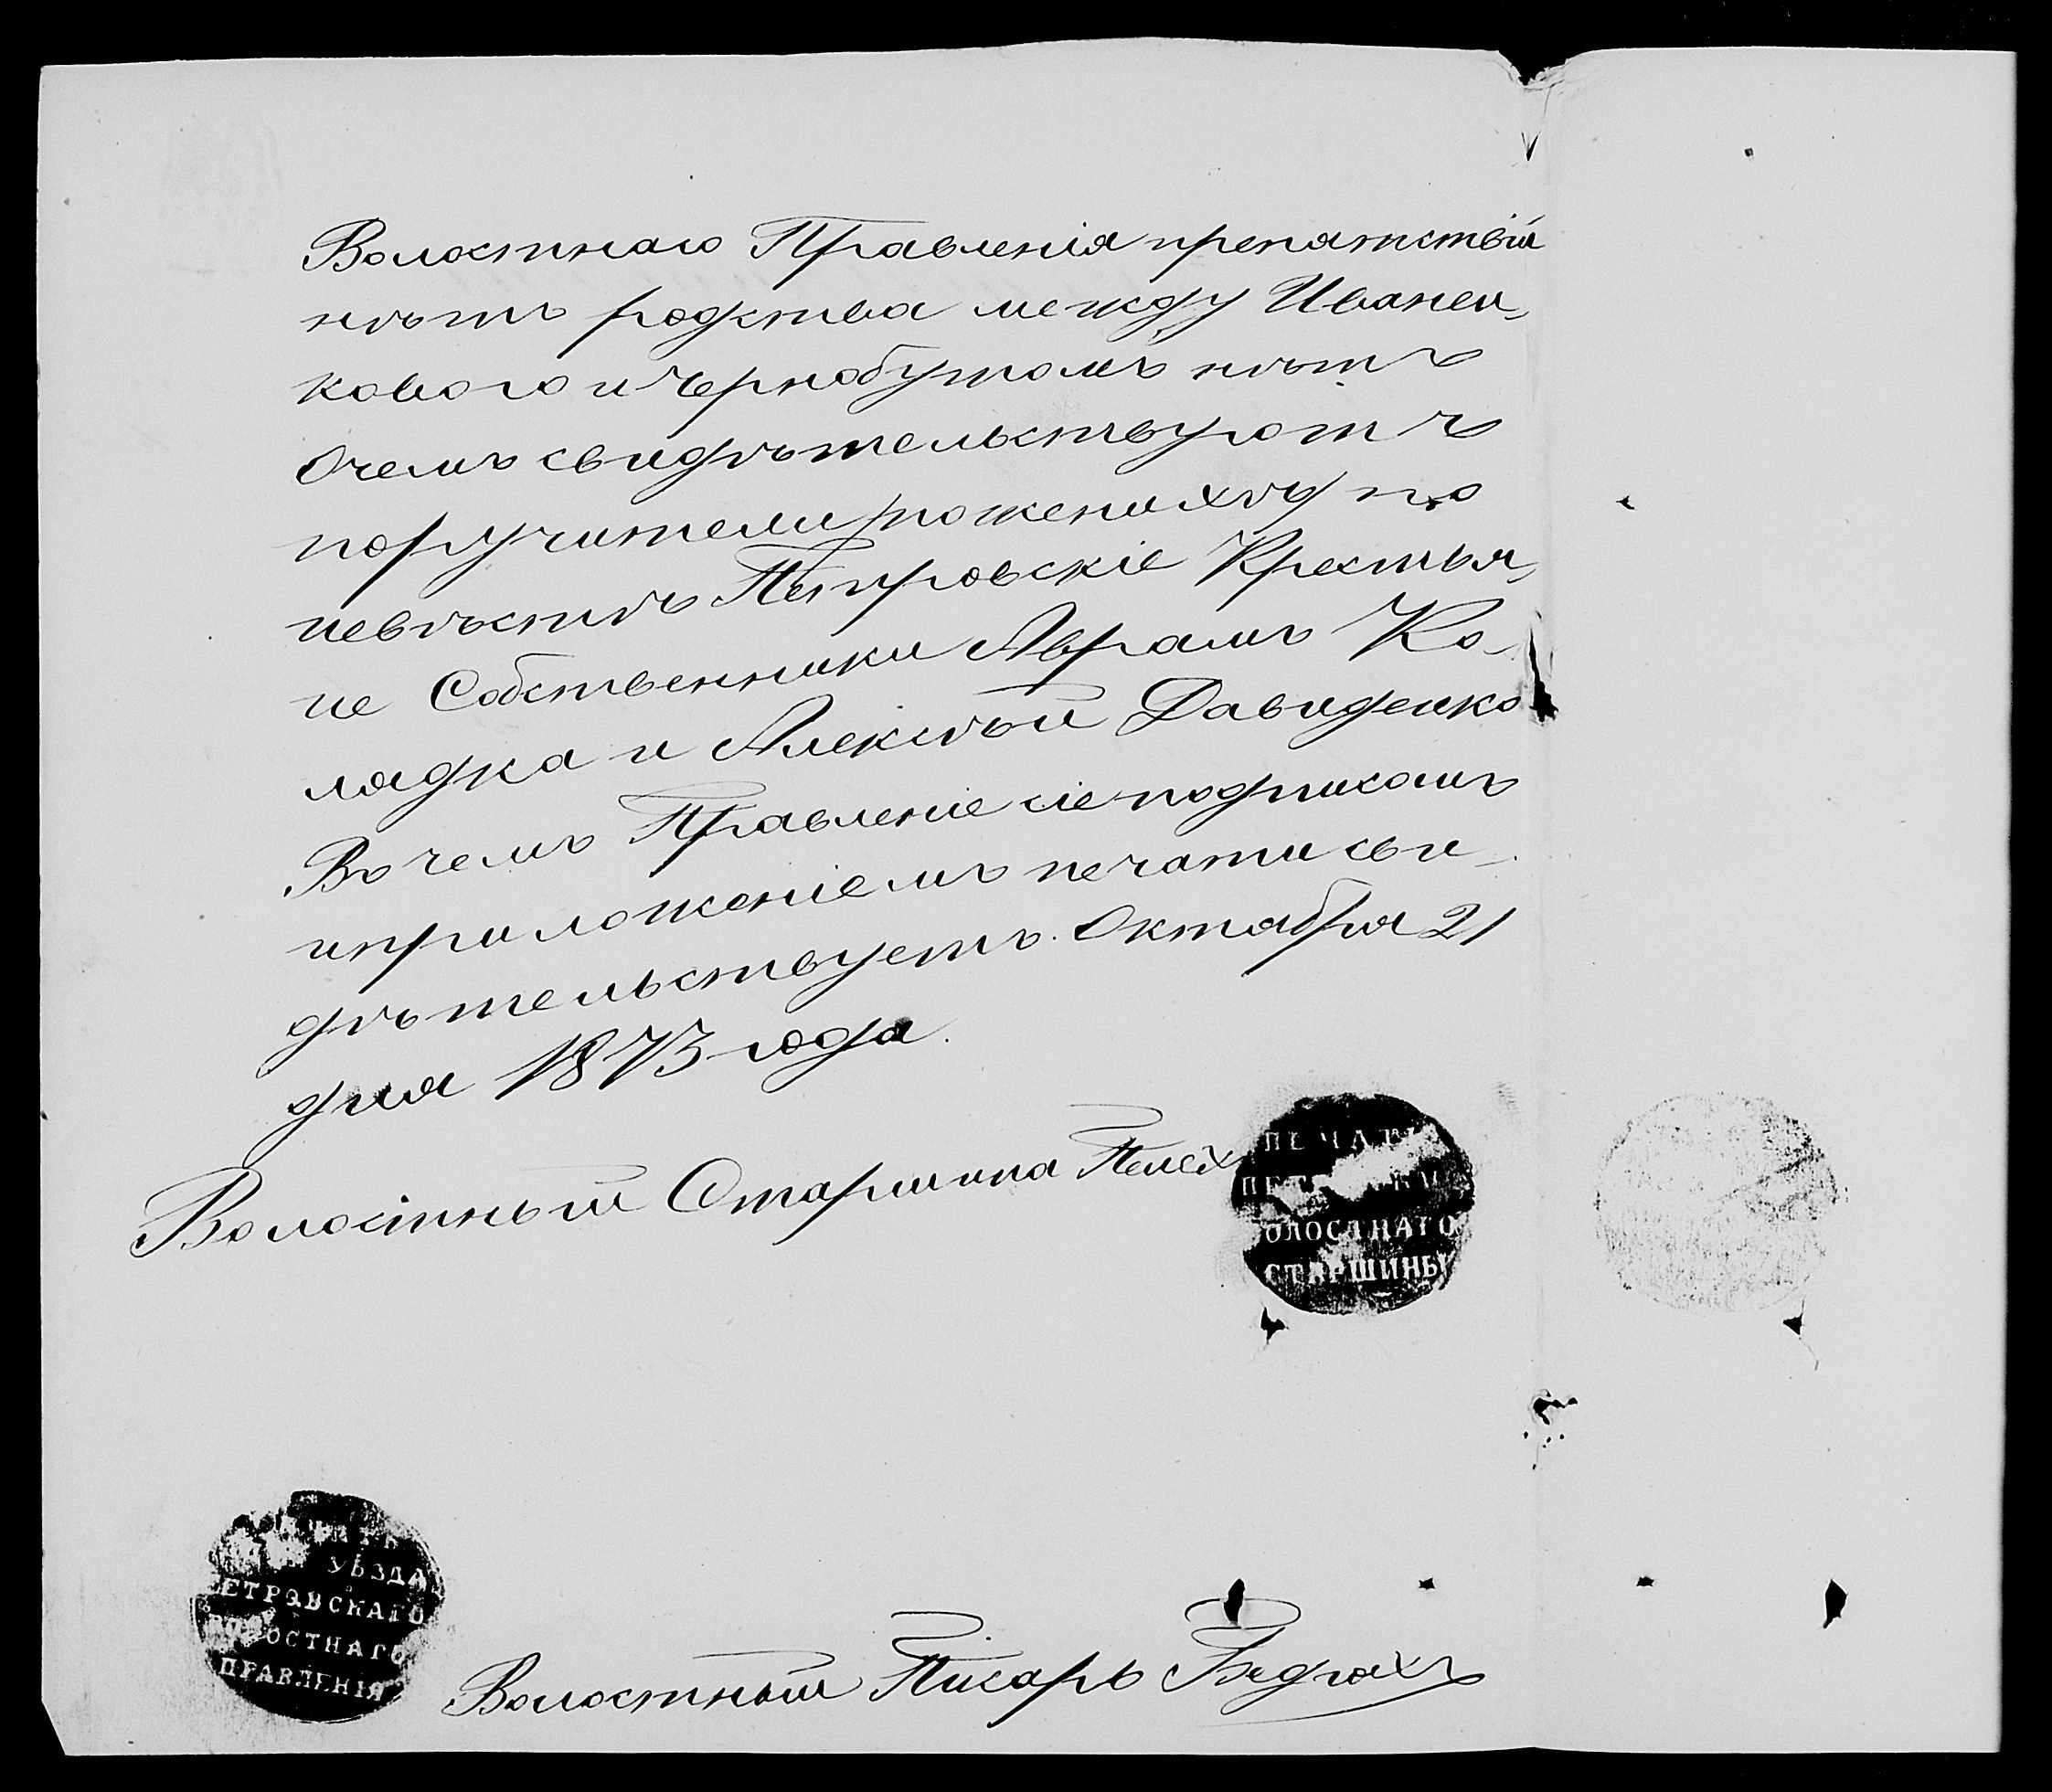 Волостнаго Правленія препятствій
нѣтъ родства между Иванен-
ковою и Чернобутомъ нѣтъ
О чемъ свидѣтельствуютъ
поручители по женихѣ и по
невѣстѣ Петровскіе Крестья-
не Собственники Аврамъ Ко-
лядка и Алексѣй Давиденко
В чемъ Правленіе сіе подписомъ
и приложеніемъ печати сви-
дѣтельствуетъ. Октября 21
дня 1873 года.
Волостный Старшина
ПЕЧАТЬ
ОЛОСТНАГО
СТАРШИНЫ
УѢЗДА
ЕТРОВСКАГО
ВОЛОСТНАГО
ПРАВЛЕНІЯ
Волостный Писарь